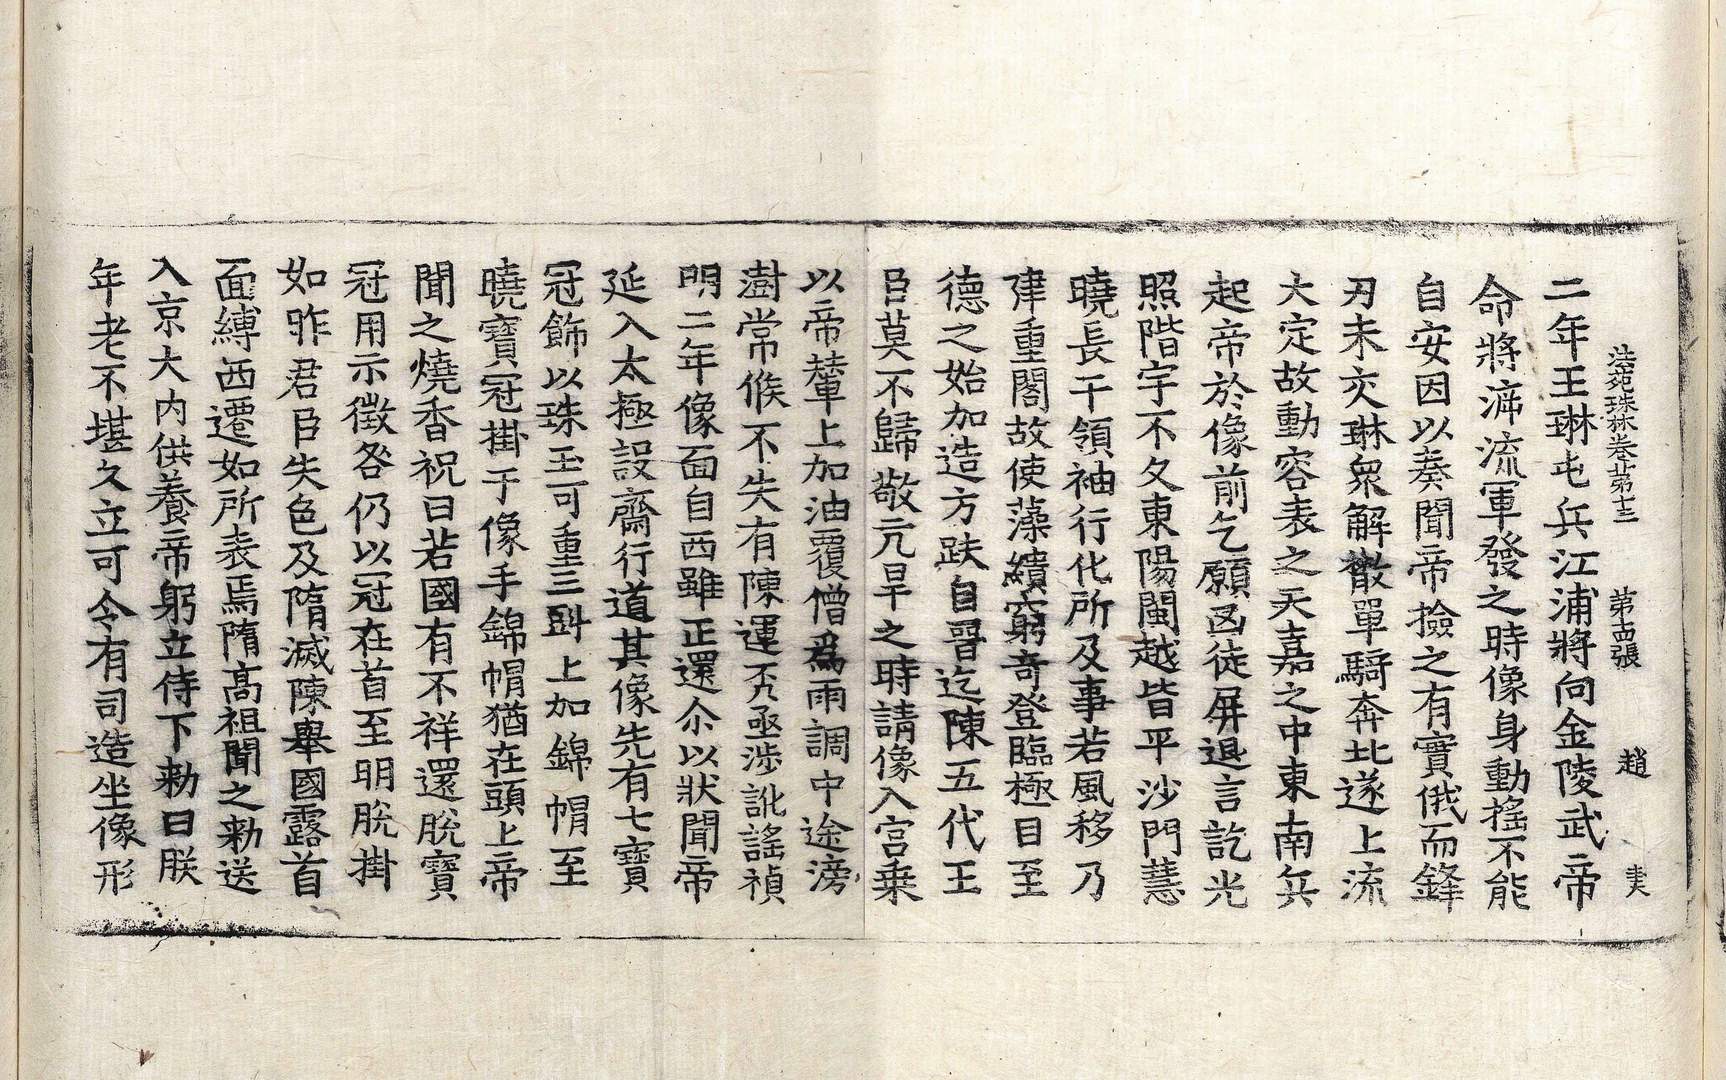 法苑珠林卷第十三 第十四張 趙 書
二年王琳屯兵江浦將向金陵武帝
命將泝流軍發之時像身動搖不能
自安因以奏聞帝撿之有實俄而鋒
刃未交琳衆解散單騎奔北遂上流
大定故動容表之天嘉之中東南兵
起帝於像前乞願凶徒屏退言訖光
照階宇不久東陽閩越皆平沙門慧
曉長干領袖行化所及事若風移乃
建重閣故使藻繢窮奇登臨極目至
德之始加造方趺自晉迄陳五代王
臣莫不歸敬亢旱之時請像入宮乗
以帝輦上加油覆僧爲雨調中途滂
澍常候不失有陳運否亟涉訛謠禎
明二年像面自西雖正還尒以狀聞帝
延入太極設齋行道其像先有七寶
冠飾以珠玉可重三㪷上加錦帽至
曉寶冠掛于像手錦帽猶在頭上帝
聞之燒香祝曰若國有不祥還脫寶
冠用示徵咎仍以冠在首至明脫掛
如昨君臣失色及隋滅陳舉國露首
面縛西遷如所表焉隋高祖聞之勑送
入京大內供養帝躬立侍下勑曰朕
年老不堪久立可令有司造坐像形